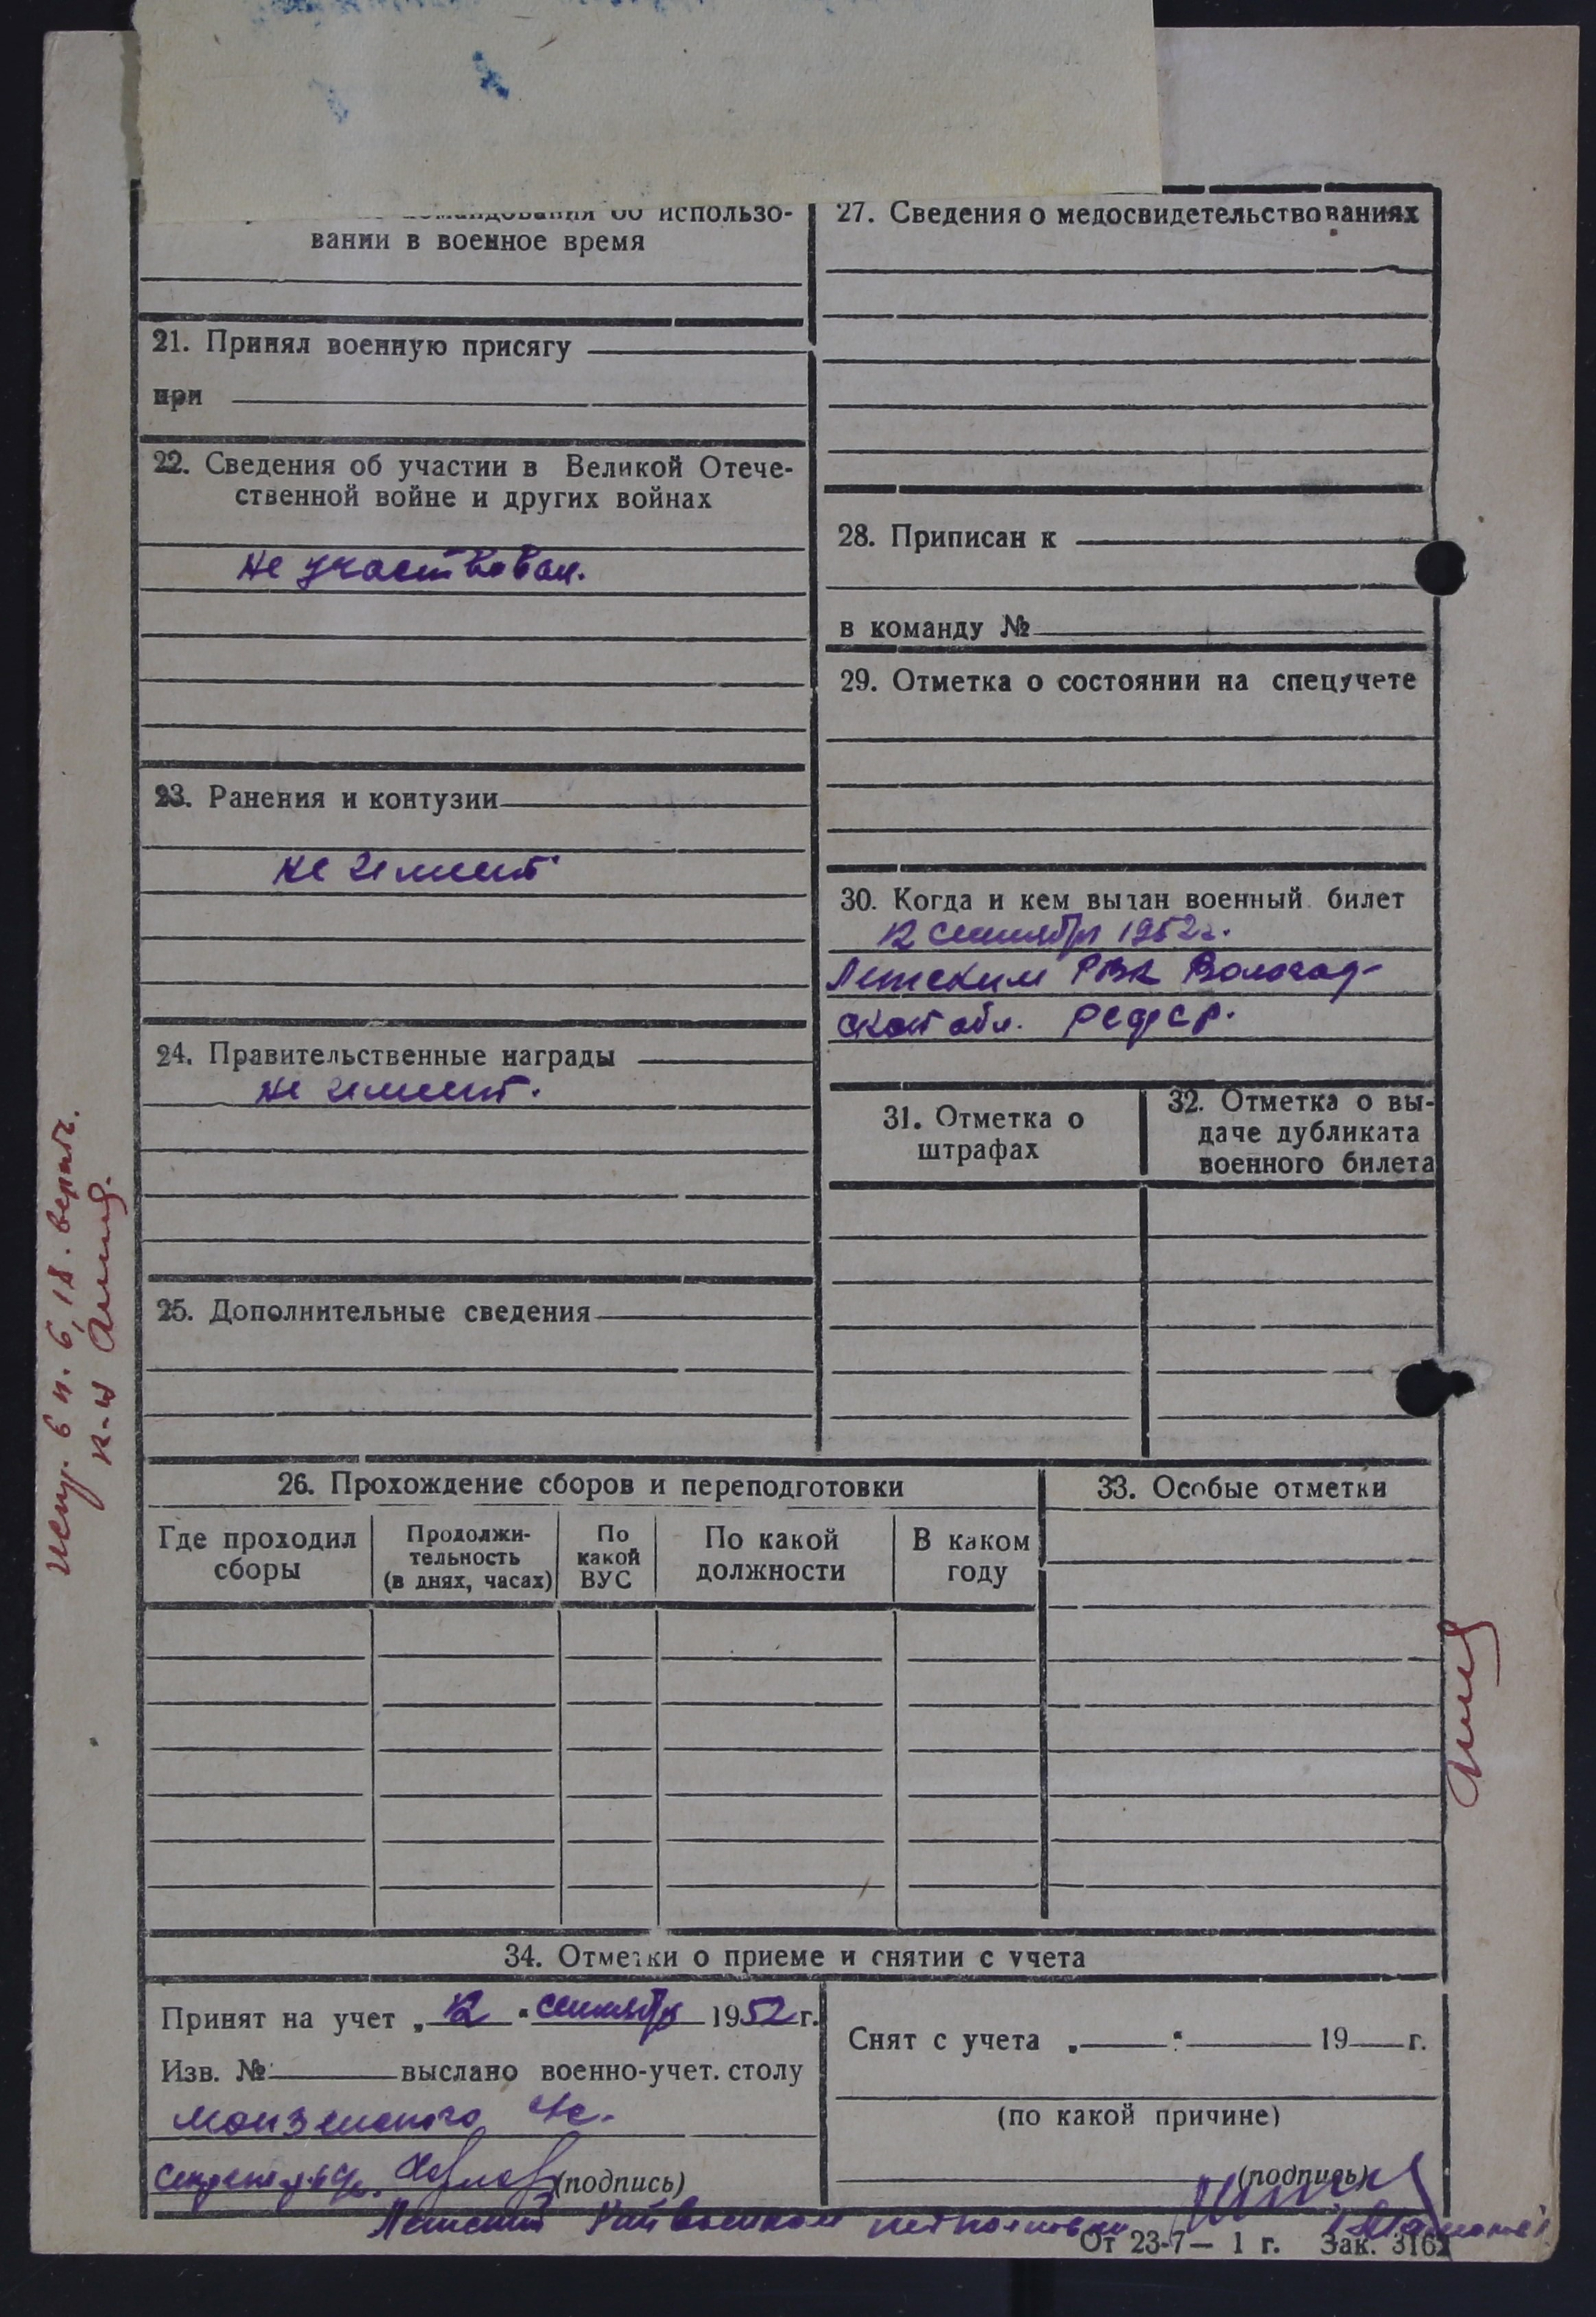 командования об использо-
вании в военное время
21. Принял военную присягу
при
22. Сведения об участии в Великой Отече-
ственной войне и других войнах
не участвовал.
23. Ранения и контузии
не имеет
24. Правительственные награды
не имеет.
25. Дополнительные сведения
27. Сведения о медосвидетельствованиях
28. Приписан к
в команду №
29. Отметка о состоянии на спецучете
30. Когда и кем выдан военный билет
12 сентября 1952 г.
Летским РВК Вологод-
ской обл. РСФСР.
31. Отметка о
штрафах
32. Отметка о вы-
даче дубликата
военного билета
26. Прохождение сборов и переподготовки
Где проходил
сборы
Продолжи-
тельность
(в днях, часах)
По
какой
ВУС
По какой
должности
В каком
году
33. Особые отметки
34. Отметки о приеме и снятии с учета
Принят на учет „12" сентября 1952 г.
Изв. № выслано военно-учет. столу
Монзенского
(подпись)
Снят с учета „ " 19 г.
(по какой причине)
(подпись)
Райвоенком подполковник
От 23-7— 1 г. Зак. 3162
п. 6, 18.